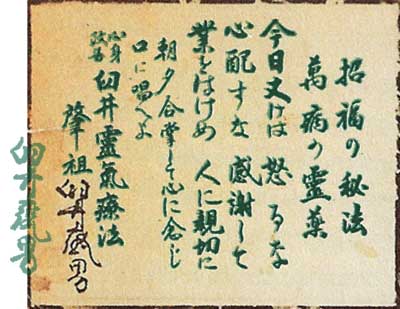 招福の秘法
萬病の靈薬
今日丈けは 怒るな
心配すな 感謝して
業をはけめ 人に親切に
朝夕合掌して心に念じ
口に唱へよ
心身改善 臼井靈氣療法
肇祖 臼井甕男
臼井甕男